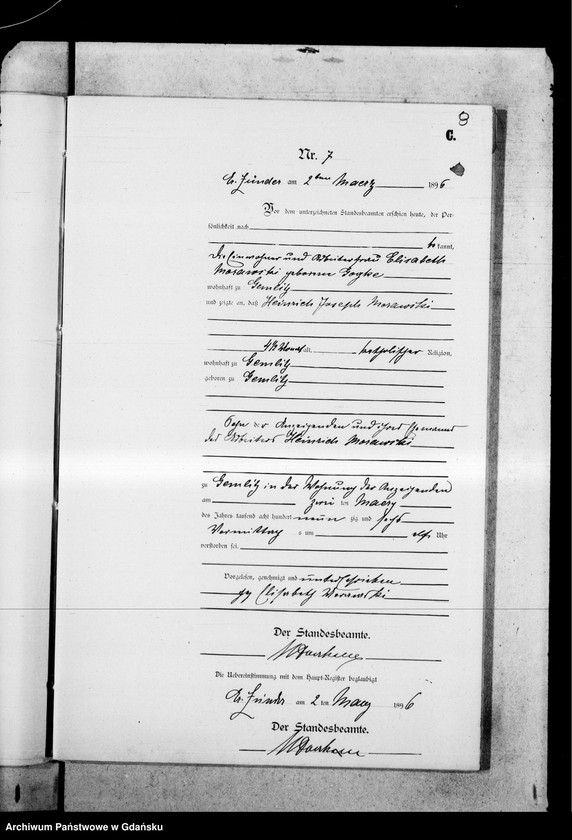 8
C.
Nr. 7
Gr. Zünder am 2ten Maerz 1896
Vor dem unterzeichneten Standesbeamten erschien heute, der Per-
sönlichkeit nach
be kannt,
die Einwohner und Arbeiterfrau Elisabeth
Morawski geborene
wohnhaft zu Gemlitz
und zeigte an, daß Heinrich Joseph Morawski
4½ Monat alt, katholischer Religion,
wohnhaft zu Gemlitz
geboren zu Gemlitz
Sohn der Anzeigenden und ihres Ehemannes
des Arbeiters Heinrich Morawski
zu Gemlitz in der Wohnung der Anzeigenden
am zwei ten Maerz
des Jahres tausend acht hundert neun zig und sechs
Vormittag s um elf Uhr
verstorben sei.
Vorgelesen, genehmigt und unterschrieben
gez Elisabeth Morawski
Der Standesbeamte.
Die Uebereinstimmung mit dem Haupt-Register beglaubigt
Gr. Zünder am 2 ten Maerz 1896
Der Standesbeamte.
Archiwum Państwowe w Gdańsku